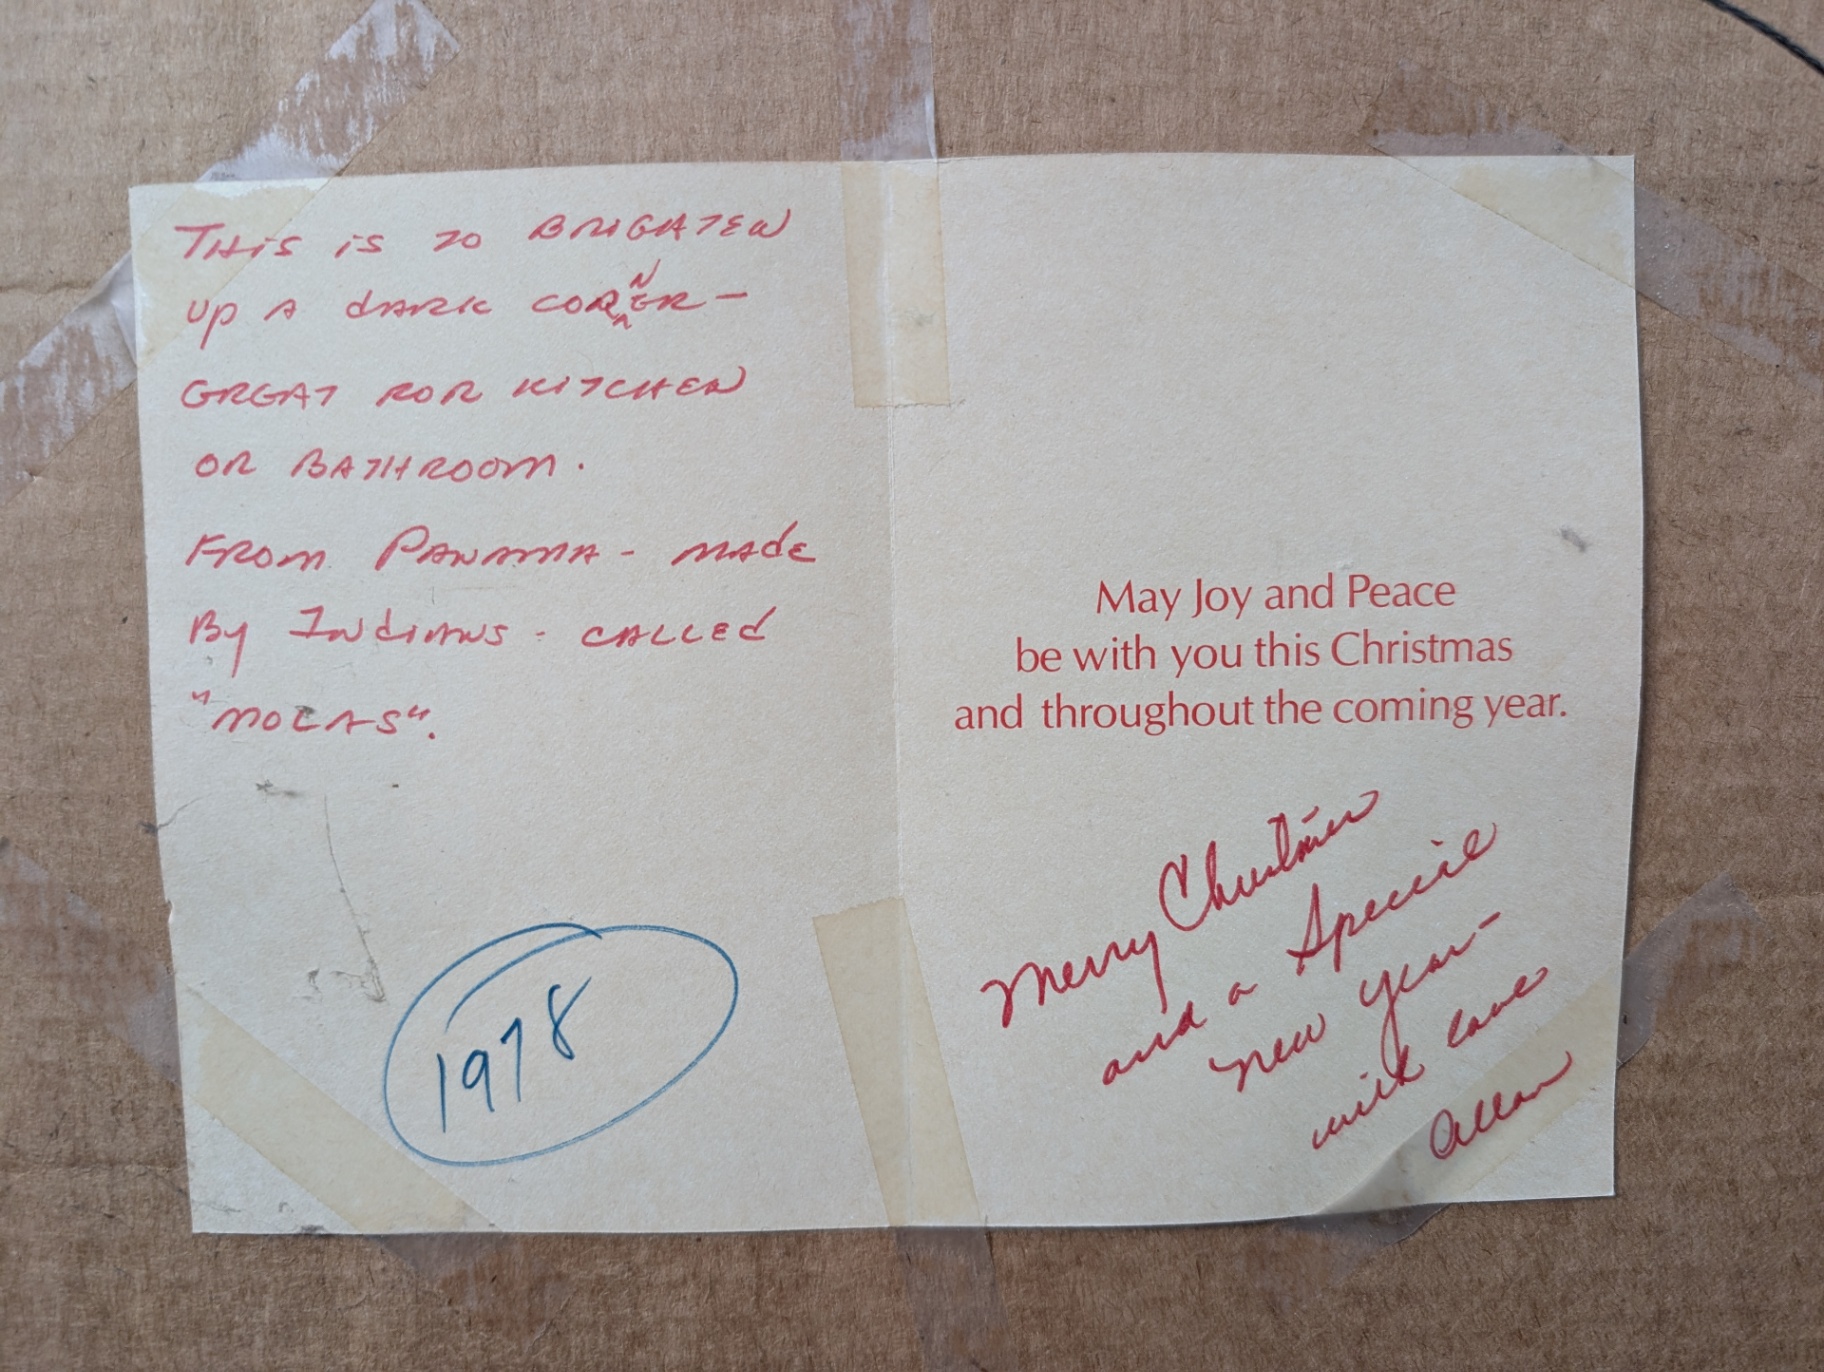 THis is TO BRIGHTEN
UP A dARK CORNER —
GREAT FOR KITCHEN
OR BATHROOM.
FROM PANAMA - MADE
By INdIANS - CALLEd
"MOLAS".
1978
May Joy and Peace
be with you this Christmas
and throughout the coming year.
Merry Christmas
and a Special
New Year -
with love
Allan